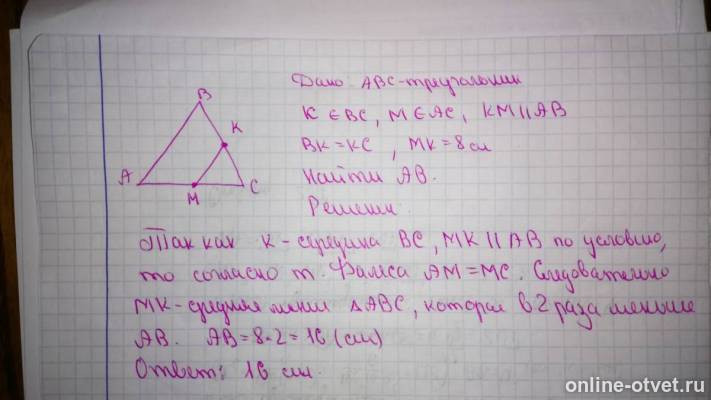 Дано: ABC-треугольник
K∈BC, M∈AC, KM||AB
BK=KC, MK=8см
Найти AB.
Решение
B
K
A
M
C
Так как K-середина BC, MK||AB по условию,
то согласно т. Фалеса AM=MC. Следовательно
MK-средняя линия ΔABC, которая в 2 раза меньше
AB. AB=8·2=16 (см)
Ответ: 16 см.
online-otvet.ru